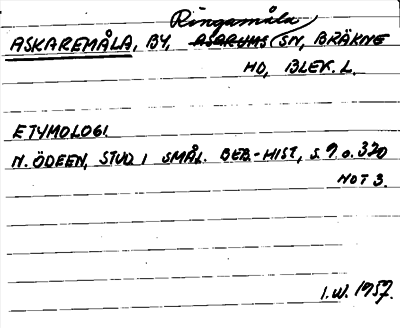 Ringamåla
ASKAREMÅLA, BY, ASARUMS SN, BRÄKNE
HD, BLEK. L.
ETYMOLOGI
N. ÖDEEN, STUD I SMÅL. BEB.-HIST, S. 9 o. 370
NOT 3.
I.W. 1957.